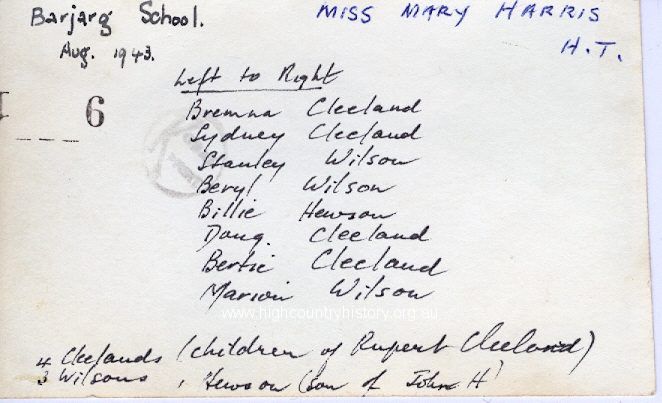 Barjarg School.
MISS MARY HARRIS
Aug. 1943.
H.T.
Left to Right
6
Bremna Cleeland
Sydney Cleeland
Stanley Wilson
Beryl Wilson
Billie Hewson
Doug. Cleeland
Bertie Cleeland
Marion Wilson
www.highcountryhistory.org.au
4 Cleelands (children of Rupert Cleeland)
3 Wilsons, Hewson (son of John H)